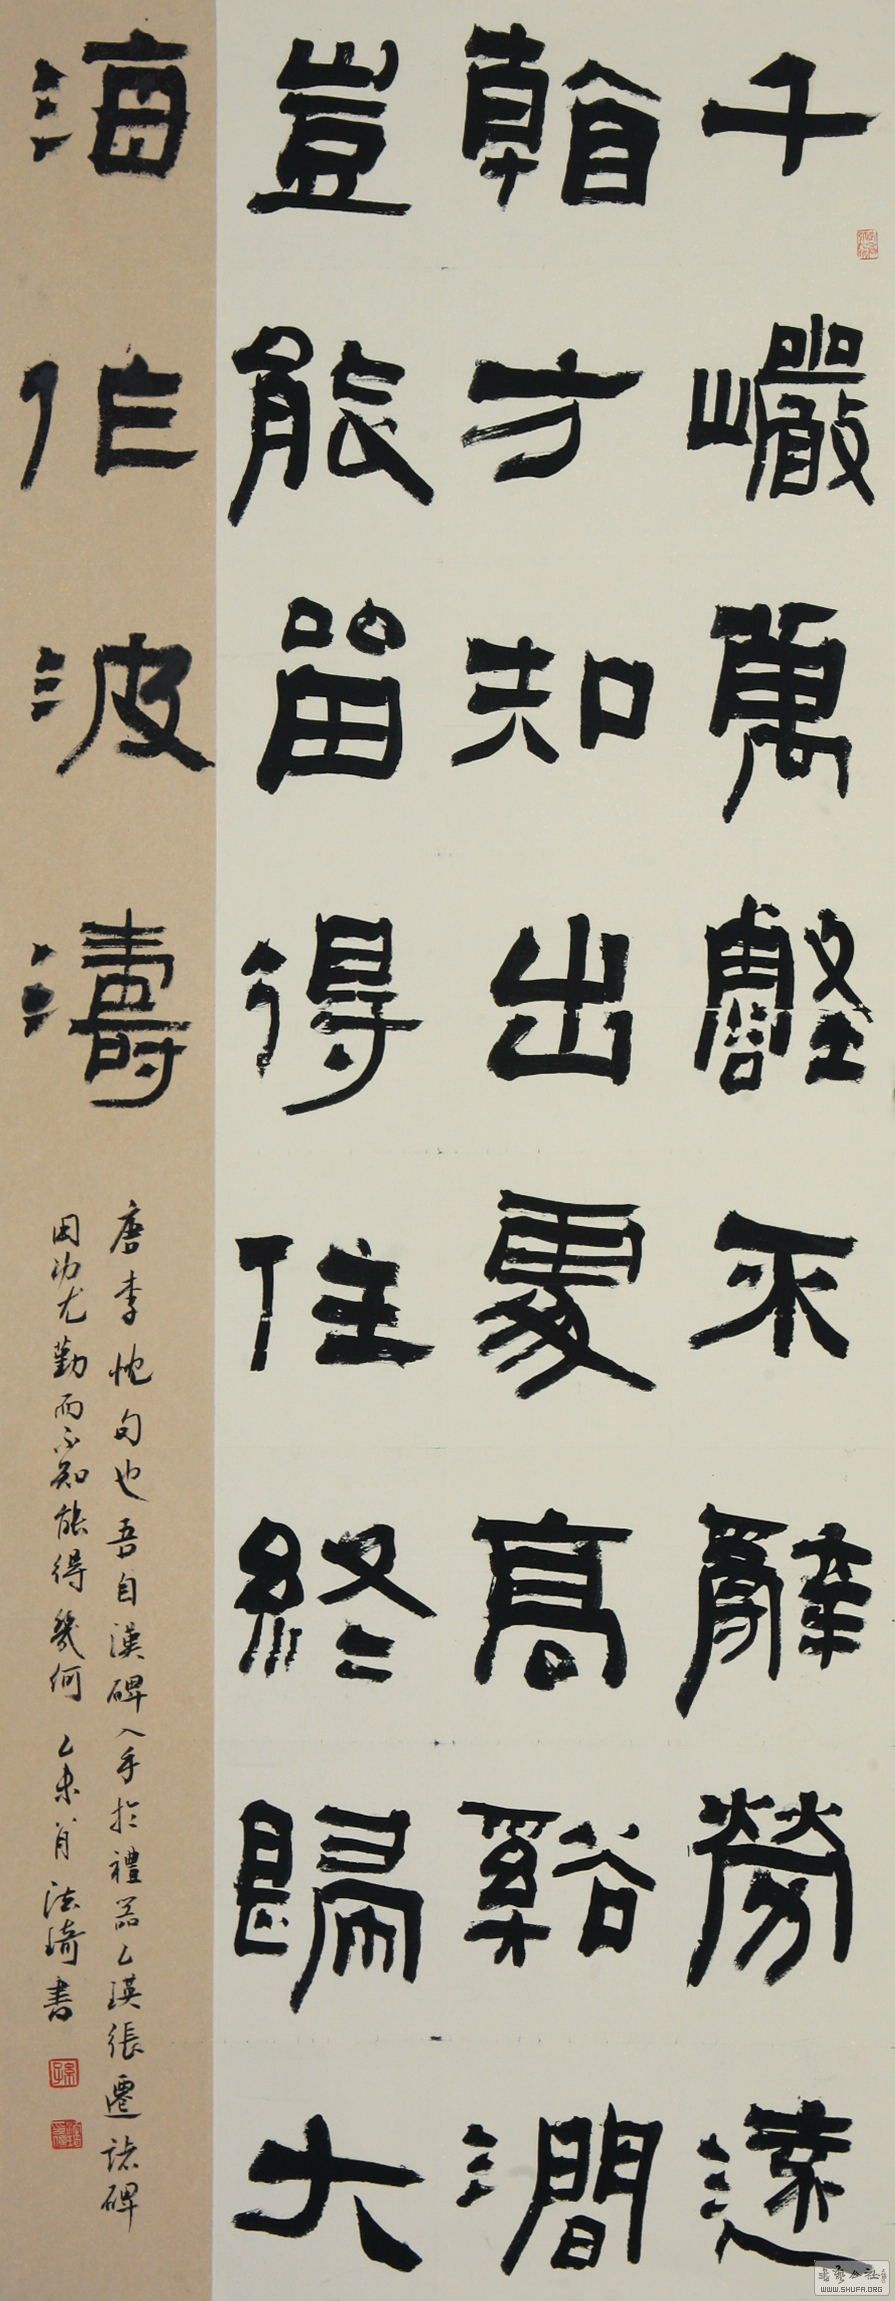 千巖萬壑不辭勞遠
看方知出處高谿澗
豈能留得住終歸大
海作波濤
唐李忱句也吾自漢碑入手於禮器乙瑛張遷諸碑
用功尤勤而不知能得幾何 乙未八月 法琦書
WWW.SHUFA.ORG